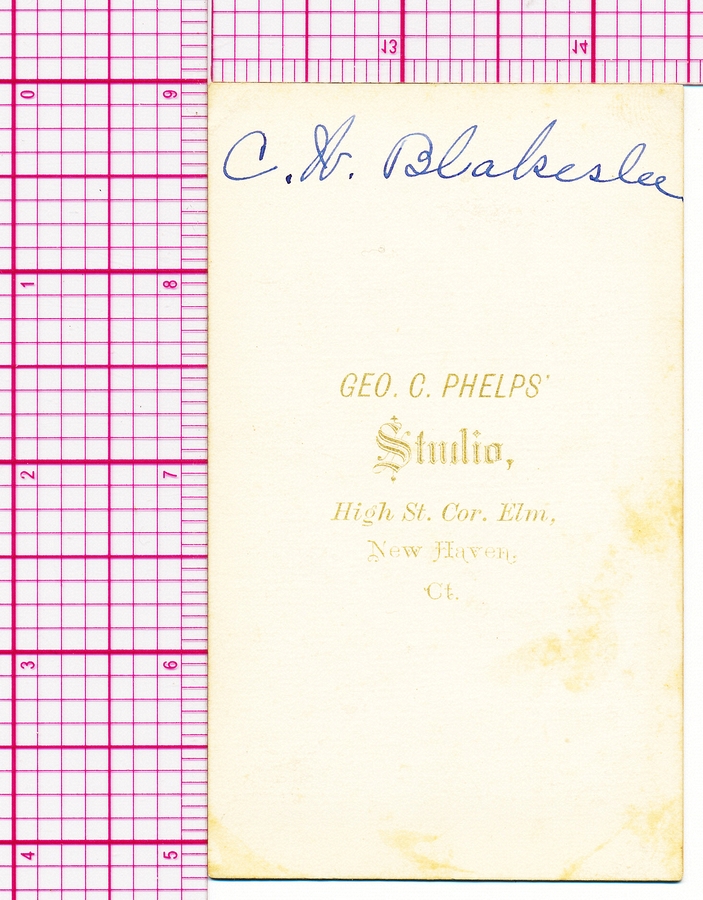 C. W. Blakeslee
GEO. C. PHELPS'
Studio,
High St. Cor. Elm,
New Haven,
Ct.
13
14
0
9
1
8
2
7
3
6
4
5